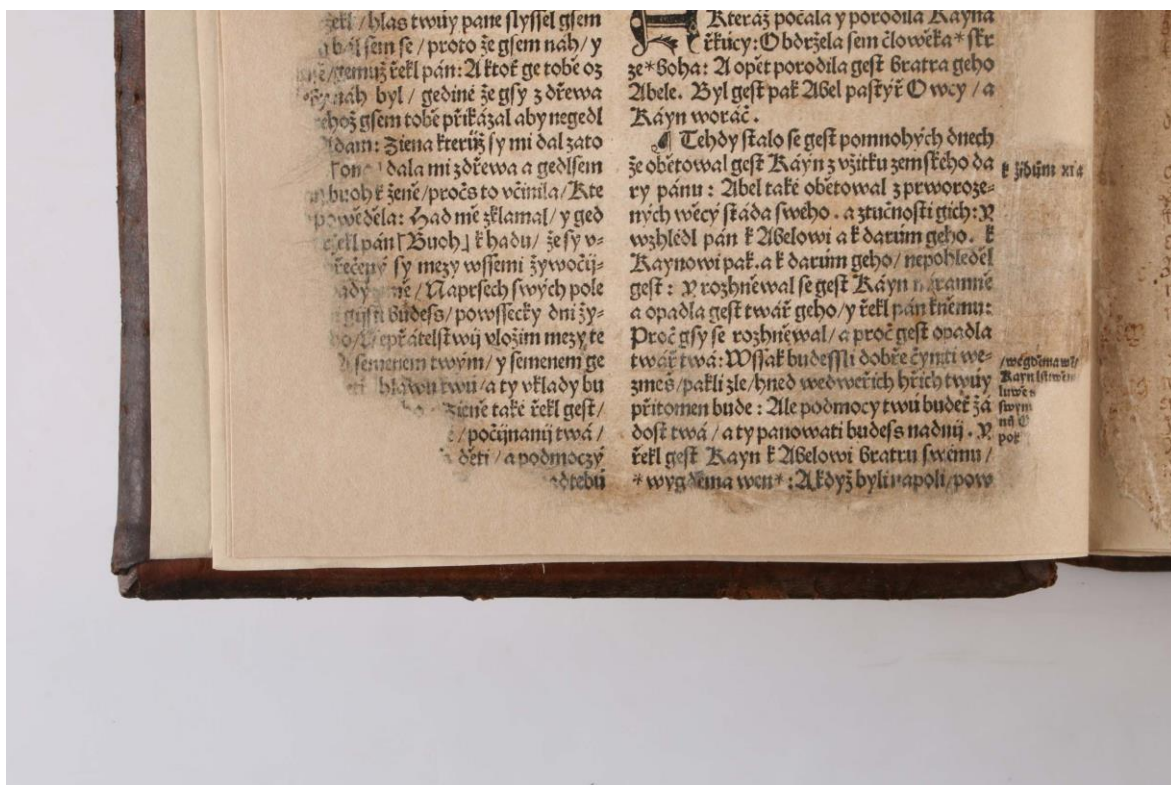 řekl / hlas twůy pane slyssel gsem
sem se / proto že gsem náh / y
gemuž řekl pán: A ktoť ge tobě oz
náh byl / gediné že gsy z dřewa
gsem tobě přikázal aby negedl
Adam: Ziena kterůž sy mi dal zato
dala mi zdřewa a gedlsem
buoh k ženě / pročs to včinila / Kte
powěděla: Had mě zklamal / y ged
řekl pán [Buoh] k hadu / že sy v-
řečený sy mezy wssemi žywočij-
Naprsech swých pole
budess / powssecky dni žy-
Nepřátelstwij vložim mezy te
semenem twým / y semenem ge
hlawu twú / a ty vklady bu
Zieně také řekl gest /
/ počijnanij twá /
děti / a podmoczý
Kteráž počala y porodila Kayna
řkúcy: Obdržela sem člowěka * skr
ze * Boha: A opět porodila gest Bratra geho
Abele. Byl gest pak Abel pastyř Owcy / a
Káyn woráč.
Tehdy stalo se gest pomnohých dnech
že obětowal gest Káyn z vžitku zemského da
ry pánu: Abel také obětowal z prworoze-
ných wěcý stáda swého. a ztučnosti gich: Y
wzhlédl pán k Abelowi a k darům geho. k
Kaynowi pak. a k darům geho / nepohleděl
gest: Y rozhněwal se gest Káyn náramně
a opadla gest twář geho / y řekl pán kněmu:
Proč gsy se rozhněwal / a proč gest opadla
twář twá: Wssak budessli dobře čyniti we-
zmeš / pakli zle / hned wedweřich hřich twůy
přitomen bude: Ale podmocy twú budeť žá
dost twá / a ty panowati budess nadnij. Y
řekl gest Kayn k Abelowi Bratru swému /
* wygděma wen *: A když byli napoli / pow
k židům xi a
Kayn
swým